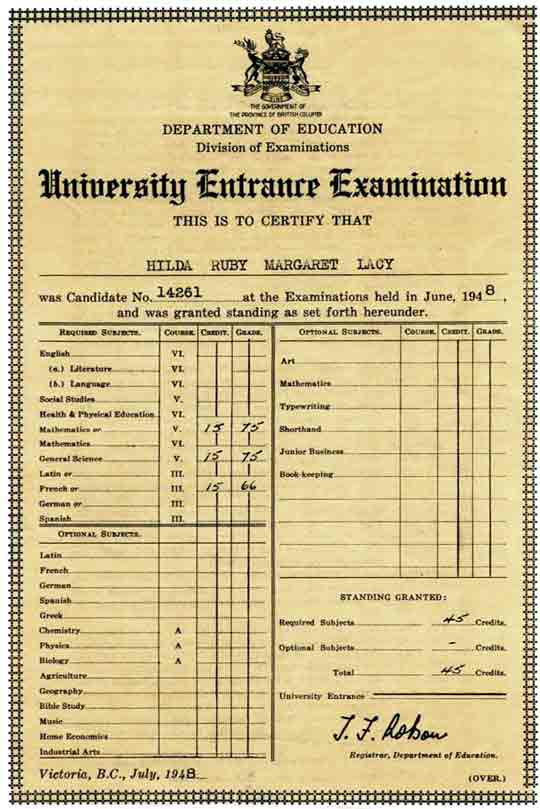 THE GOVERNMENT OF
THE PROVINCE OF BRITISH COLUMBIA
DEPARTMENT OF EDUCATION
Division of Examinations
University Entrance Examination
THIS IS TO CERTIFY THAT
HILDA RUBY MARGARET LACY
was Candidate No. 14261 at the Examinations held in June, 1948,
and was granted standing as set forth hereunder.
REQUIRED SUBJECTS. COURSE. CREDIT. GRADE.
English VI.
(a.) Literature VI.
(b.) Language VI.
Social Studies V.
Health & Physical Education VI.
Mathematics or V. 15 75
Mathematics VI.
General Science V. 15 75
Latin or III.
French or III. 15 66
German or III.
Spanish III.
OPTIONAL SUBJECTS.
Latin
French
German
Spanish
Greek
Chemistry A
Physics A
Biology A
Agriculture
Geography
Bible Study
Music
Home Economics
Industrial Arts
OPTIONAL SUBJECTS. COURSE. CREDIT. GRADE.
Art
Mathematics
Typewriting
Shorthand
Junior Business
Book-keeping
STANDING GRANTED:
Required Subjects 45 Credits.
Optional Subjects - Credits.
Total 45 Credits.
University Entrance
T. F. Robson
Registrar, Department of Education.
Victoria, B.C., July, 1948
(OVER.)